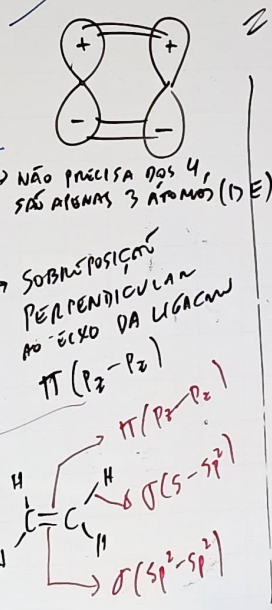 + +
- -
NÃO PRECISA DOS 4,
SÃO APENAS 3 ÁTOMOS (1 E)
→ SOBREPOSIÇÃO
PERPENDICULAR
AO EIXO DA LIGAÇÃO
π (Pz-Pz)
π(Pz-Pz)
H H
C=C
σ(S-Sp²)
H
σ(Sp²-Sp²)